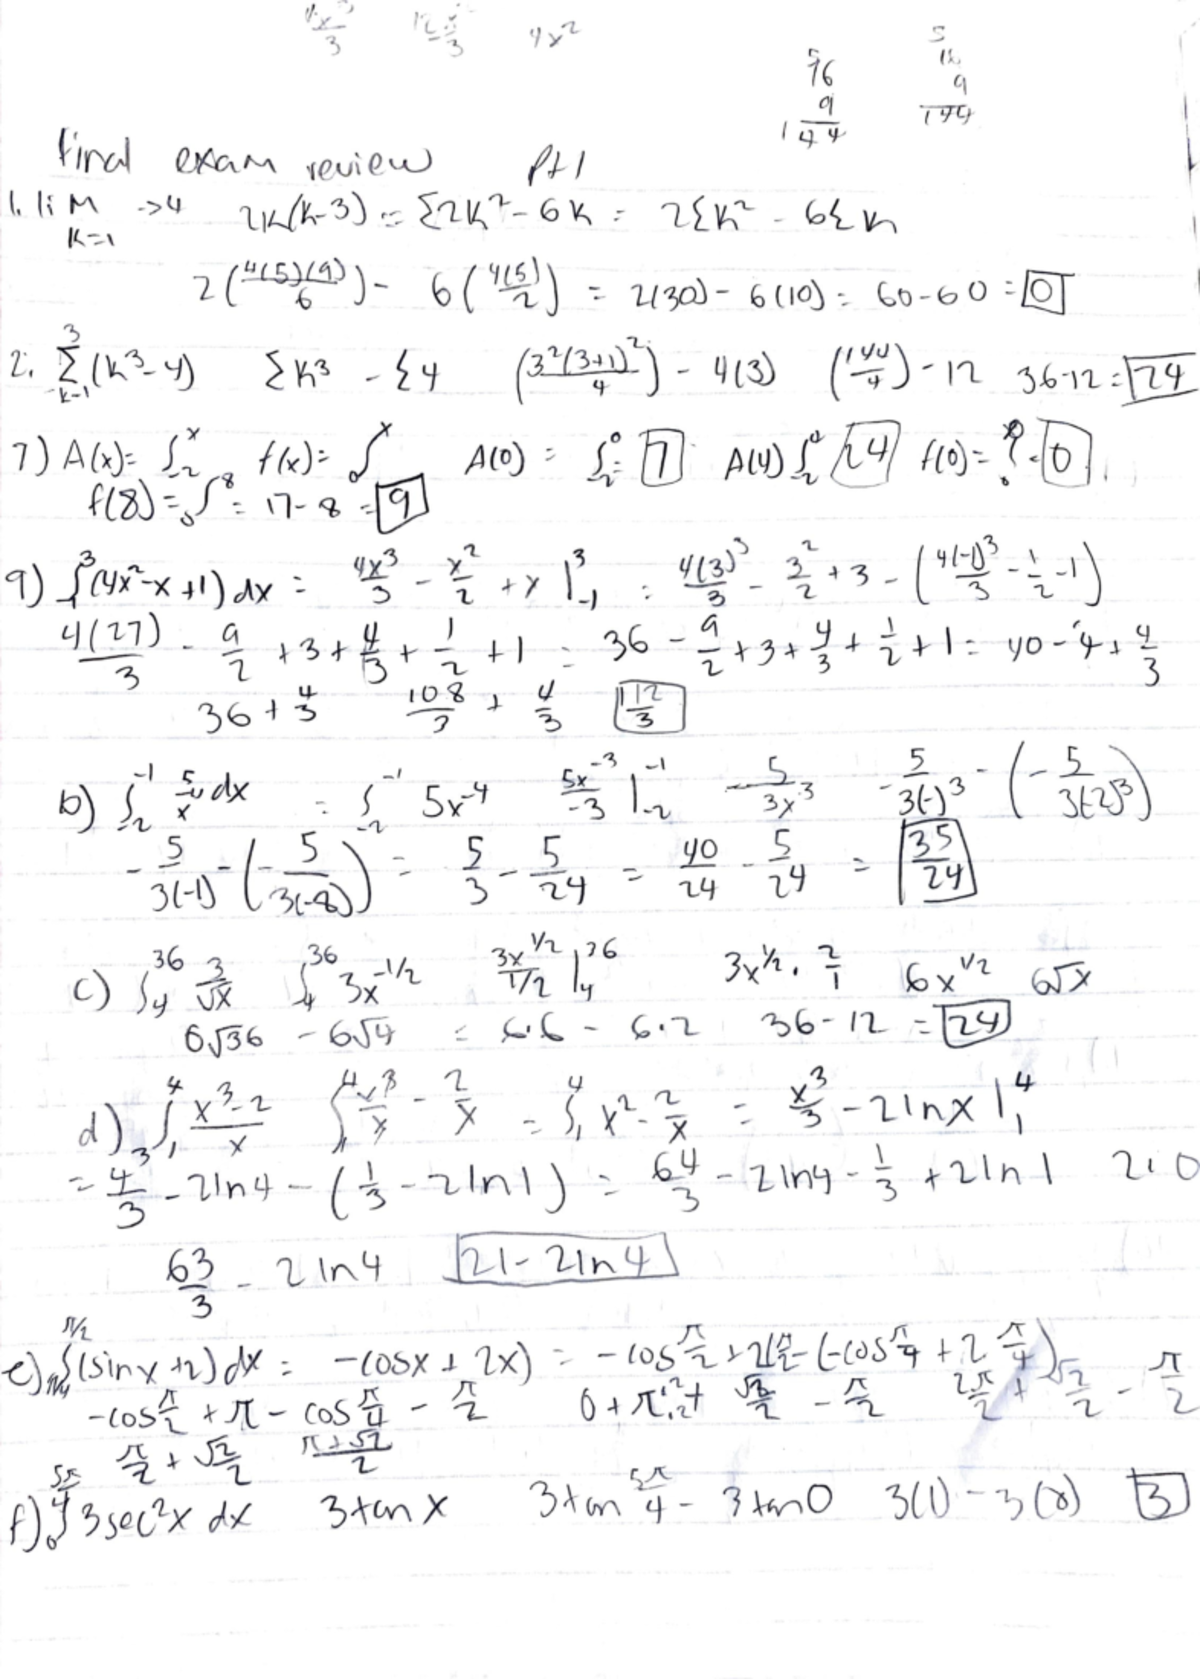 4x³/3 12x/3 4x²
5
16 9 144
5
16 9 144
final exam review Pt 1
1. lim k=1 ->4 2k(k-3) = Σ2k²-6k = 2Σk² - 6Σk
2(4(5)(9)/6) - 6(4(5)/2) = 2(30) - 6(10) = 60-60 = 0
2. 3Σk=1 (k³-4) Σk³ - Σ4 (3²(3+1)²/4) - 4(3) (144/4) - 12 36-12 = 24
7) A(x) = ∫-2^x f(x) = ∫0^x A(0) = ∫-2^0 = 7 A(4) ∫ 24 f(0) = ? = 0
f(8) = ∫0^8 = 17-8 = 9
9) ∫-1^3 (4x²-x+1) dx = 4x³/3 - x²/2 + x |-1^3 = 4(3)³/3 - 3²/2 + 3 - (4(-1)³/3 - 1/2 - 1)
4(27)/3 - 9/2 + 3 + 4/3 + 1/2 + 1 = 36 - 9/2 + 3 + 4/3 + 1/2 + 1 = 40 - 4 + 4/3
36 + 4/3 108/3 + 4/3 112/3
b) ∫-2^-1 5/x⁴ dx = ∫-2^-1 5x⁻⁴ 5x⁻³/-3 |-2^-1 -5/3x³ -5/3(-)³ - (-5/3(-2)³)
-5/3(-1) - (-5/3(-8)) = 5/3 - 5/24 = 40/24 - 5/24 = 35/24
c) ∫4^36 3/√x ∫4^36 3x^-1/2 3x^1/2/1/2 |4^36 3x^1/2 · 2/1 6x^1/2 6√x
6√36 - 6√4 = 6·6 - 6·2 36-12 = 24
d) ∫1^4 x³-2/x ∫1^4 x³/x - 2/x = ∫1^4 x² - 2/x = x³/3 - 2lnx |1^4
= 4³/3 - 2ln4 - (1/3 - 2ln1) = 64/3 - 2ln4 - 1/3 + 2ln1 2·0
63/3 - 2ln4 21 - 2ln4
e) ∫π/4^π/2 (sinx+2) dx = -cosx + 2x) = -cos π/2 + 2(π/2 - (-cos π/4 + 2 π/4)
-cos π/2 + π - cos π/4 - π/2 0 + π + √2/2 - π/2 2π/2 + √2/2 - π/2
π/2 + √2/2 π+√2/2
f) ∫0^5π/4 3sec²x dx 3tanx 3tan 5π/4 - 3tan0 3(1) - 3(0) 3